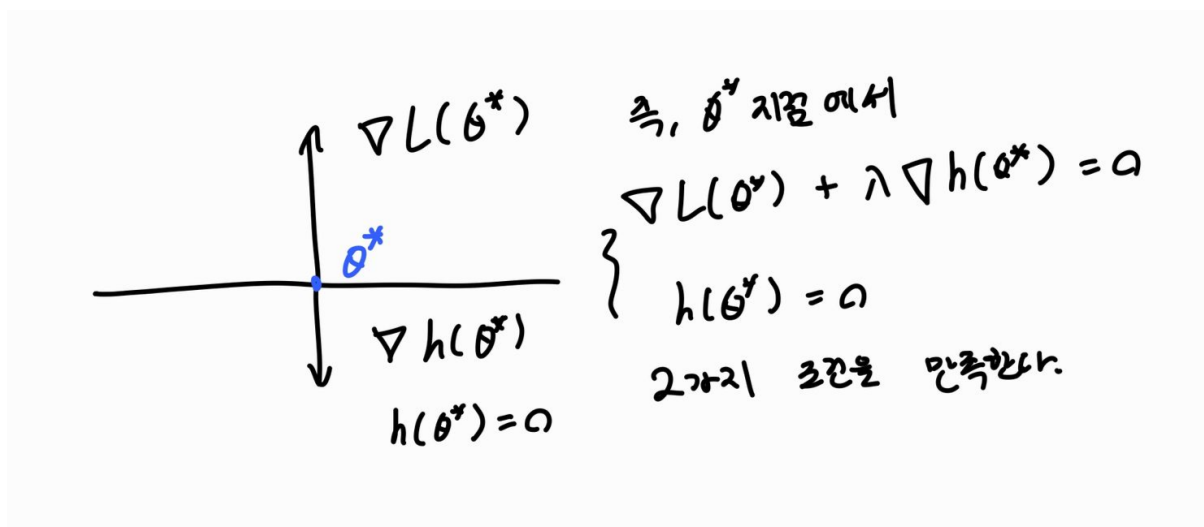 ∇L(θ*)
θ*
∇h(θ*)
h(θ*)=0
즉, θ* 지점에서
∇L(θ*) + λ∇h(θ*) = 0
h(θ*) = 0
2가지 조건을 만족한다.